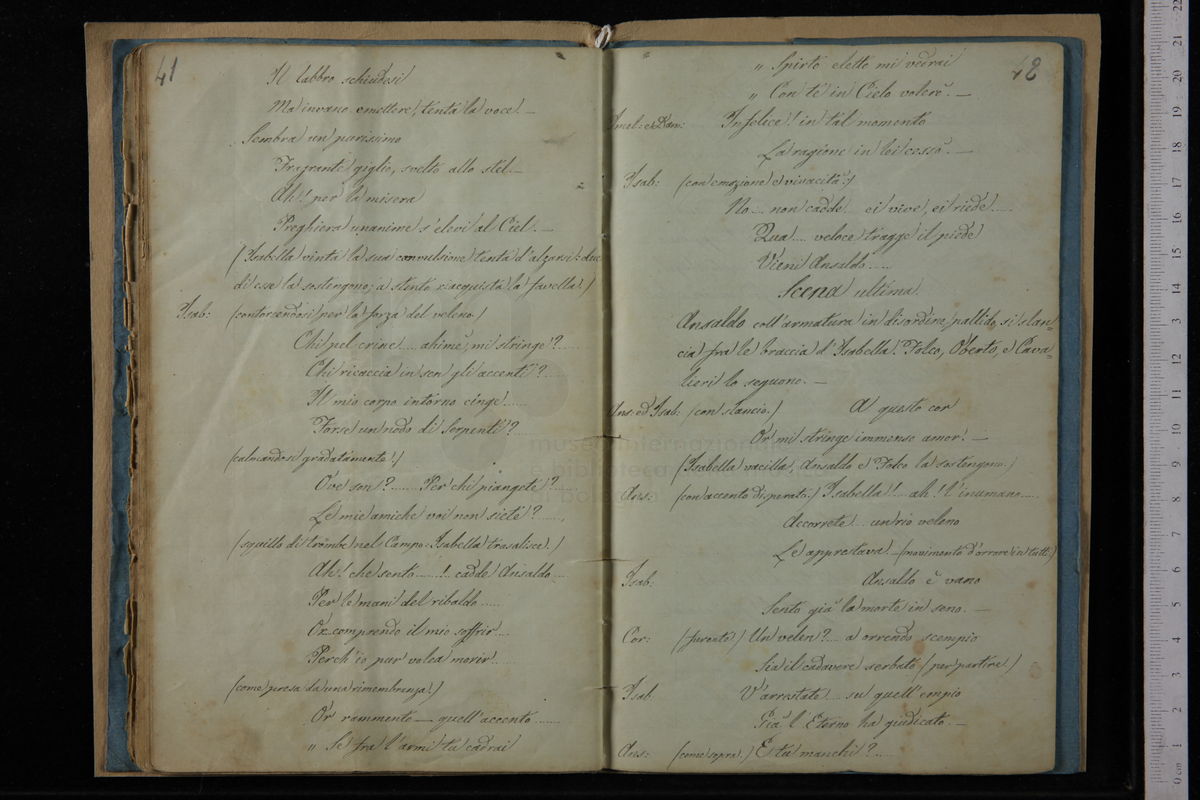 41
Il labbro schiudesi
Ma invano emettere, tenta la voce! —
Sembra un purissimo
Fragrante giglio, svelto allo stel. —
Ah! per la misera
Preghiera unanime s'elevi al Ciel. —
(Isabella vinta la sua convulsione tenta d'alzarsi: due
di esse la sostengono; a stento riacquista la favella.)
Isab: (contorcendosi per la forza del veleno)
Chi pel crine .... ahimè, mi stringe? ......
Chi ricaccia in sen gli accenti? ......
Il mio corpo intorno cinge ......
Forse un nodo di Serpenti?
(calmandosi gradatamente!)
Ove son? ....... Per chi piangete? ......
Le mie amiche voi non siete? .......
(squillo di trombe nel Campo: Isabella trasalisce.)
Ah! che sento ........! cadde Ansaldo ...
Per le mani del ribaldo .....
Or comprendo il mio soffrir ...
Perch'io pur volea morir .....
(come presa da una rimembranza!)
Or rammento — quell'accento .......
„ Se fra l'armi tu cadrai
42
„ Spirto eletto mi vedrai
„ Con te in Cielo volerè. —
Imel: e Dam: Infelice! in tal momento
La ragione in lei cessò. —
Isab: (con emozione e vivacità!)
No ... non cadde ... ei vive, ei riede .....
Qua .... veloce tragge il piede
Vieni Ansaldo .....
Scena ultima.
Ansaldo coll'armatura in disordine, pallido, si slan=
cia fra le braccia d'Isabella. Folco, Oberto, e Cava=
lieri lo seguono. —
Ans: ed Isab: (con slancio.) A questo cor
Or mi stringe immenso amor! —
(Isabella vacilla, Ansaldo e Folco la sostengono.)
Ans: (con accento disperato.) Isabella!! ... ah! l'inumano ....
Accorrete ... un rio veleno
Le apprestava! — (movimento d'orrore in tutti.)
Isab: Ansaldo è vano
Sento già la morte in seno. —
Cor: (furente!) Un velen? ... a orrendo scempio
Sia il cadavere serbato (per partire)
Isab. V'arrestate ... su quell'empio
Già l'Eterno ha giudicato. —
Ans: (come sopra.) E tu manchi? ..